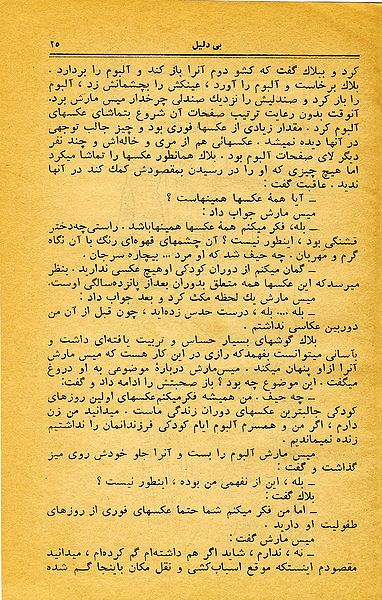 بی دلیل
۲۵
کرد و ببلاك گفت که کشو دوم آنرا باز کند و آلبوم را بردارد .
بلاك برخاست و آلبوم را آورد ، عینکش را بچشمانش زد ، آلبوم
را باز کرد و صندلیش را نزدیك صندلی چرخدار میس مارش برد.
آنوقت بدون رعایت ترتیب صفحات آن شروع بتماشای عکسهای
آلبوم کرد . مقدار زیادی از عکسها فوری بود و چیز جالب توجهی
در آنها دیده نمیشد . عکسهائی هم از مری و خاله‌اش و چند نفر
دیگر لای صفحات آلبوم بود . بلاك همانطور عکسها را تماشا میکرد
اما هیچ چیزی که او را در رسیدن بمقصودش کمك کند در آنها
ندید . عاقبت گفت :
ــ آیا همهٔ عکسها همینهاست ؟
میس مارش جواب داد :
ــ بله، فکر میکنم همهٔ عکسها همینهاباشد . راستی‌چه‌دختر
قشنگی بود ، اینطور نیست ؟ آن چشمهای قهوه‌ای رنگ با آن نگاه
گرم و مهربان . چه حیف شد که او مرد ... بیچاره سرجان .
ــ گمان میکنم از دوران کودکی اوهیچ عکسی ندارید . بنظر
میرسدکه این عکسها همه متعلق بدوران بعداز پانزده‌سالگی اوست.
میس مارش یك لحظه مکث کرد و بعد جواب داد :
ــ بله .... بله ، درست حدس زده‌اید ، چون قبل از آن من
دوربین عکاسی نداشتم .
بلاك گوشهای بسیار حساس و تربیت یافته‌ای داشت و
بآسانی میتوانست بفهمدکه رازی در این کار هست که میس مارش
آنرا ازاو پنهان میکند . میس‌مارش دربارهٔ موضوعی به او دروغ
میگفت . این موضوع چه بود ؟ باز صحبتش را ادامه داد و گفت:
ــ چه حیف . من همیشه فکرمیکنم‌عکسهای اولین روزهای
کودکی جالبترین عکسهای دوران زندگی ماست . میدانید من زن
دارم ، اگر من و همسرم آلبوم ایام کودکی فرزندانمان را نداشتیم
زنده نمیماندیم .
میس مارش آلبوم را بست و آنرا جلو خودش روی میز
گذاشت و گفت :
ــ بله ، این از نفهمی من بوده ، اینطور نیست ؟
بلاك گفت :
ــ اما من فکر میکنم شما حتما عکسهای فوری از روزهای
طفولیت او دارید .
میس مارش گفت :
ــ نه ، ندارم ، شاید اگر هم داشته‌ام گم کرده‌ام ، میدانید
مقصودم اینستکه موقع اسباب‌کشی و نقل مکان باینجا گم شده